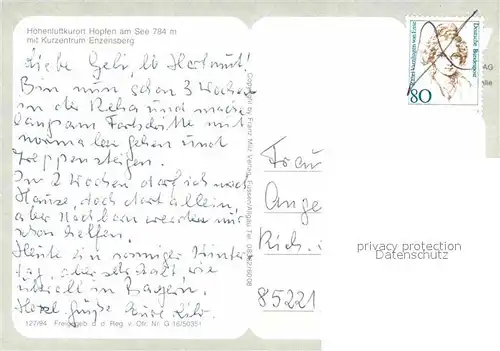 Höhenluftkurort Hopfen am See 784 m
mit Kurzentrum Enzensberg
Liebe Geli, lb Hartmut!
Bin nun schon 3 Wochen
in der Reha und mache
langsam Fortschritte mit
normalen gehen und
Treppensteigen.
In 2 Wochen darf ich nach
Hause, doch dort allein,
aber Nachbarn werden mir
schon helfen.
Heute ein sonniger Winter
tag, aber sehr kalt, wie
überall in Bayern.
Herzl. Grüße Eure
127/94 Freigegeb. d. d. Reg. v. Obr. Nr. G 16/50351
Copyright by Franz Milz Verlag, Füssen/Allgäu
Deutsche Bundespost
80
AG
Frau
Ange
Rich.
85221
privacy protection
Datenschutz